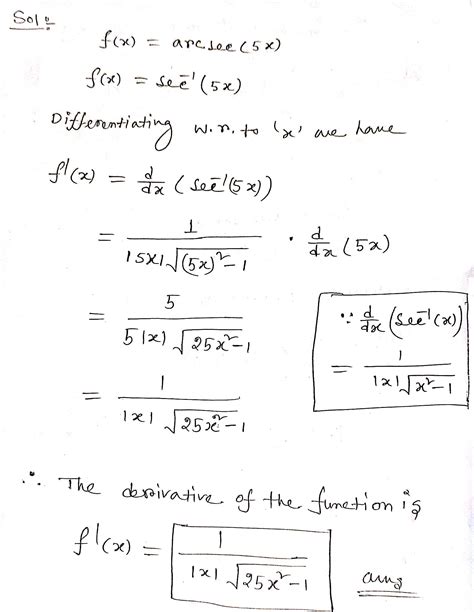 Sol:
f(x) = arcsec(5x)
f(x) = sec⁻¹(5x)
Differentiating w.r. to 'x' we have
f'(x) = d/dx (sec⁻¹(5x))
= 1/(|5x|√((5x)²-1)) · d/dx (5x)
= 5/(5|x|√(25x²-1))
∵ d/dx (sec⁻¹(x))
= 1/(|x|√(x²-1))
= 1/(|x|√(25x²-1))
∴ The derivative of the function is
f'(x) = 1/(|x|√(25x²-1)) ans